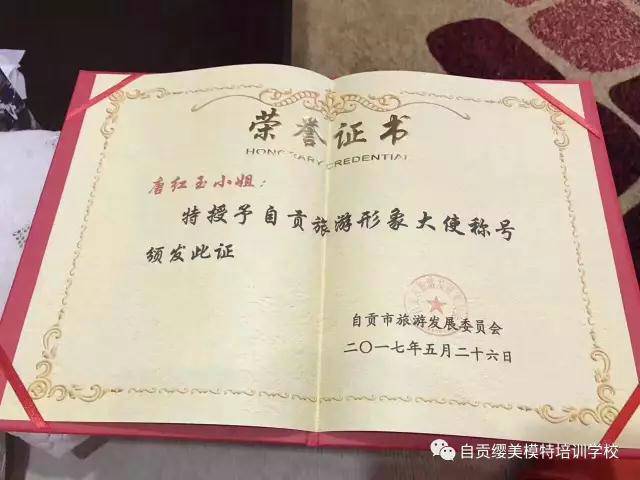 荣誉证书
HONORARY CREDENTIAL
唐红玉小姐：
特授予自贡旅游形象大使称号
颁发此证
自贡市旅游发展委员会
二〇一七年五月二十六日
自贡缨美模特培训学校